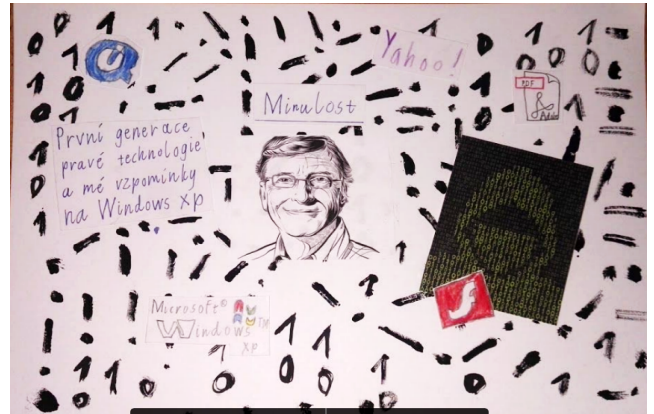 Yahoo!
Minulost
PDF
Adobe
První generace
pravé technologie,
a mé vzpomínky
na Windows xp
Microsoft®
Windows™
xp